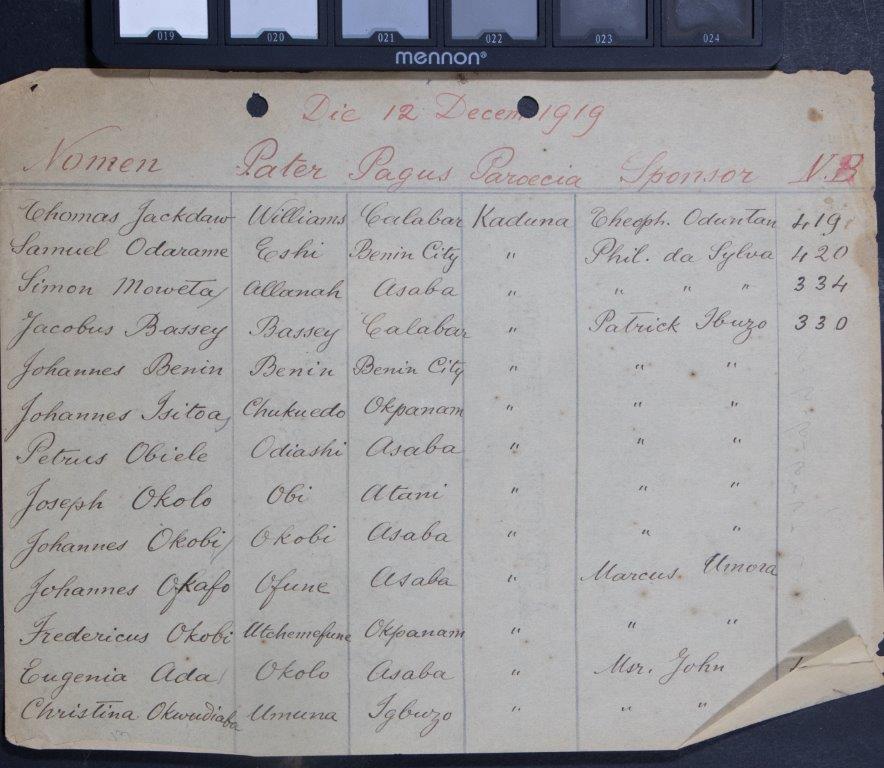 019 020 021 022 023 024
mennon®
Die 12 Decem 1919
Nomen Pater Pagus Paroecia Sponsor N.B
Thomas Jackdaw Williams Calabar Kaduna Theoph. Oduntan 419
Samuel Odarame Eshi Benin City " Phil. da Sylva 420
Simon Moweta Allanah Asaba " " " " 334
Jacobus Bassey Bassey Calabar " Patrick Ibuzo 330
Johannes Benin Benin Benin City " " "
Johannes Isitoa Chukuedo Okpanam " " "
Petrus Obiele Odiashi Asaba " " "
Joseph Okolo Obi Atani " " "
Johannes Okobi Okobi Asaba " " "
Johannes Okafo Ofune Asaba " Marcus Umora
Fredericus Okobi Utchemefune Okpanam " " "
Eugenia Ada Okolo Asaba " Msr. John
Christina Okwudiaba Umuna Igbuzo " " "